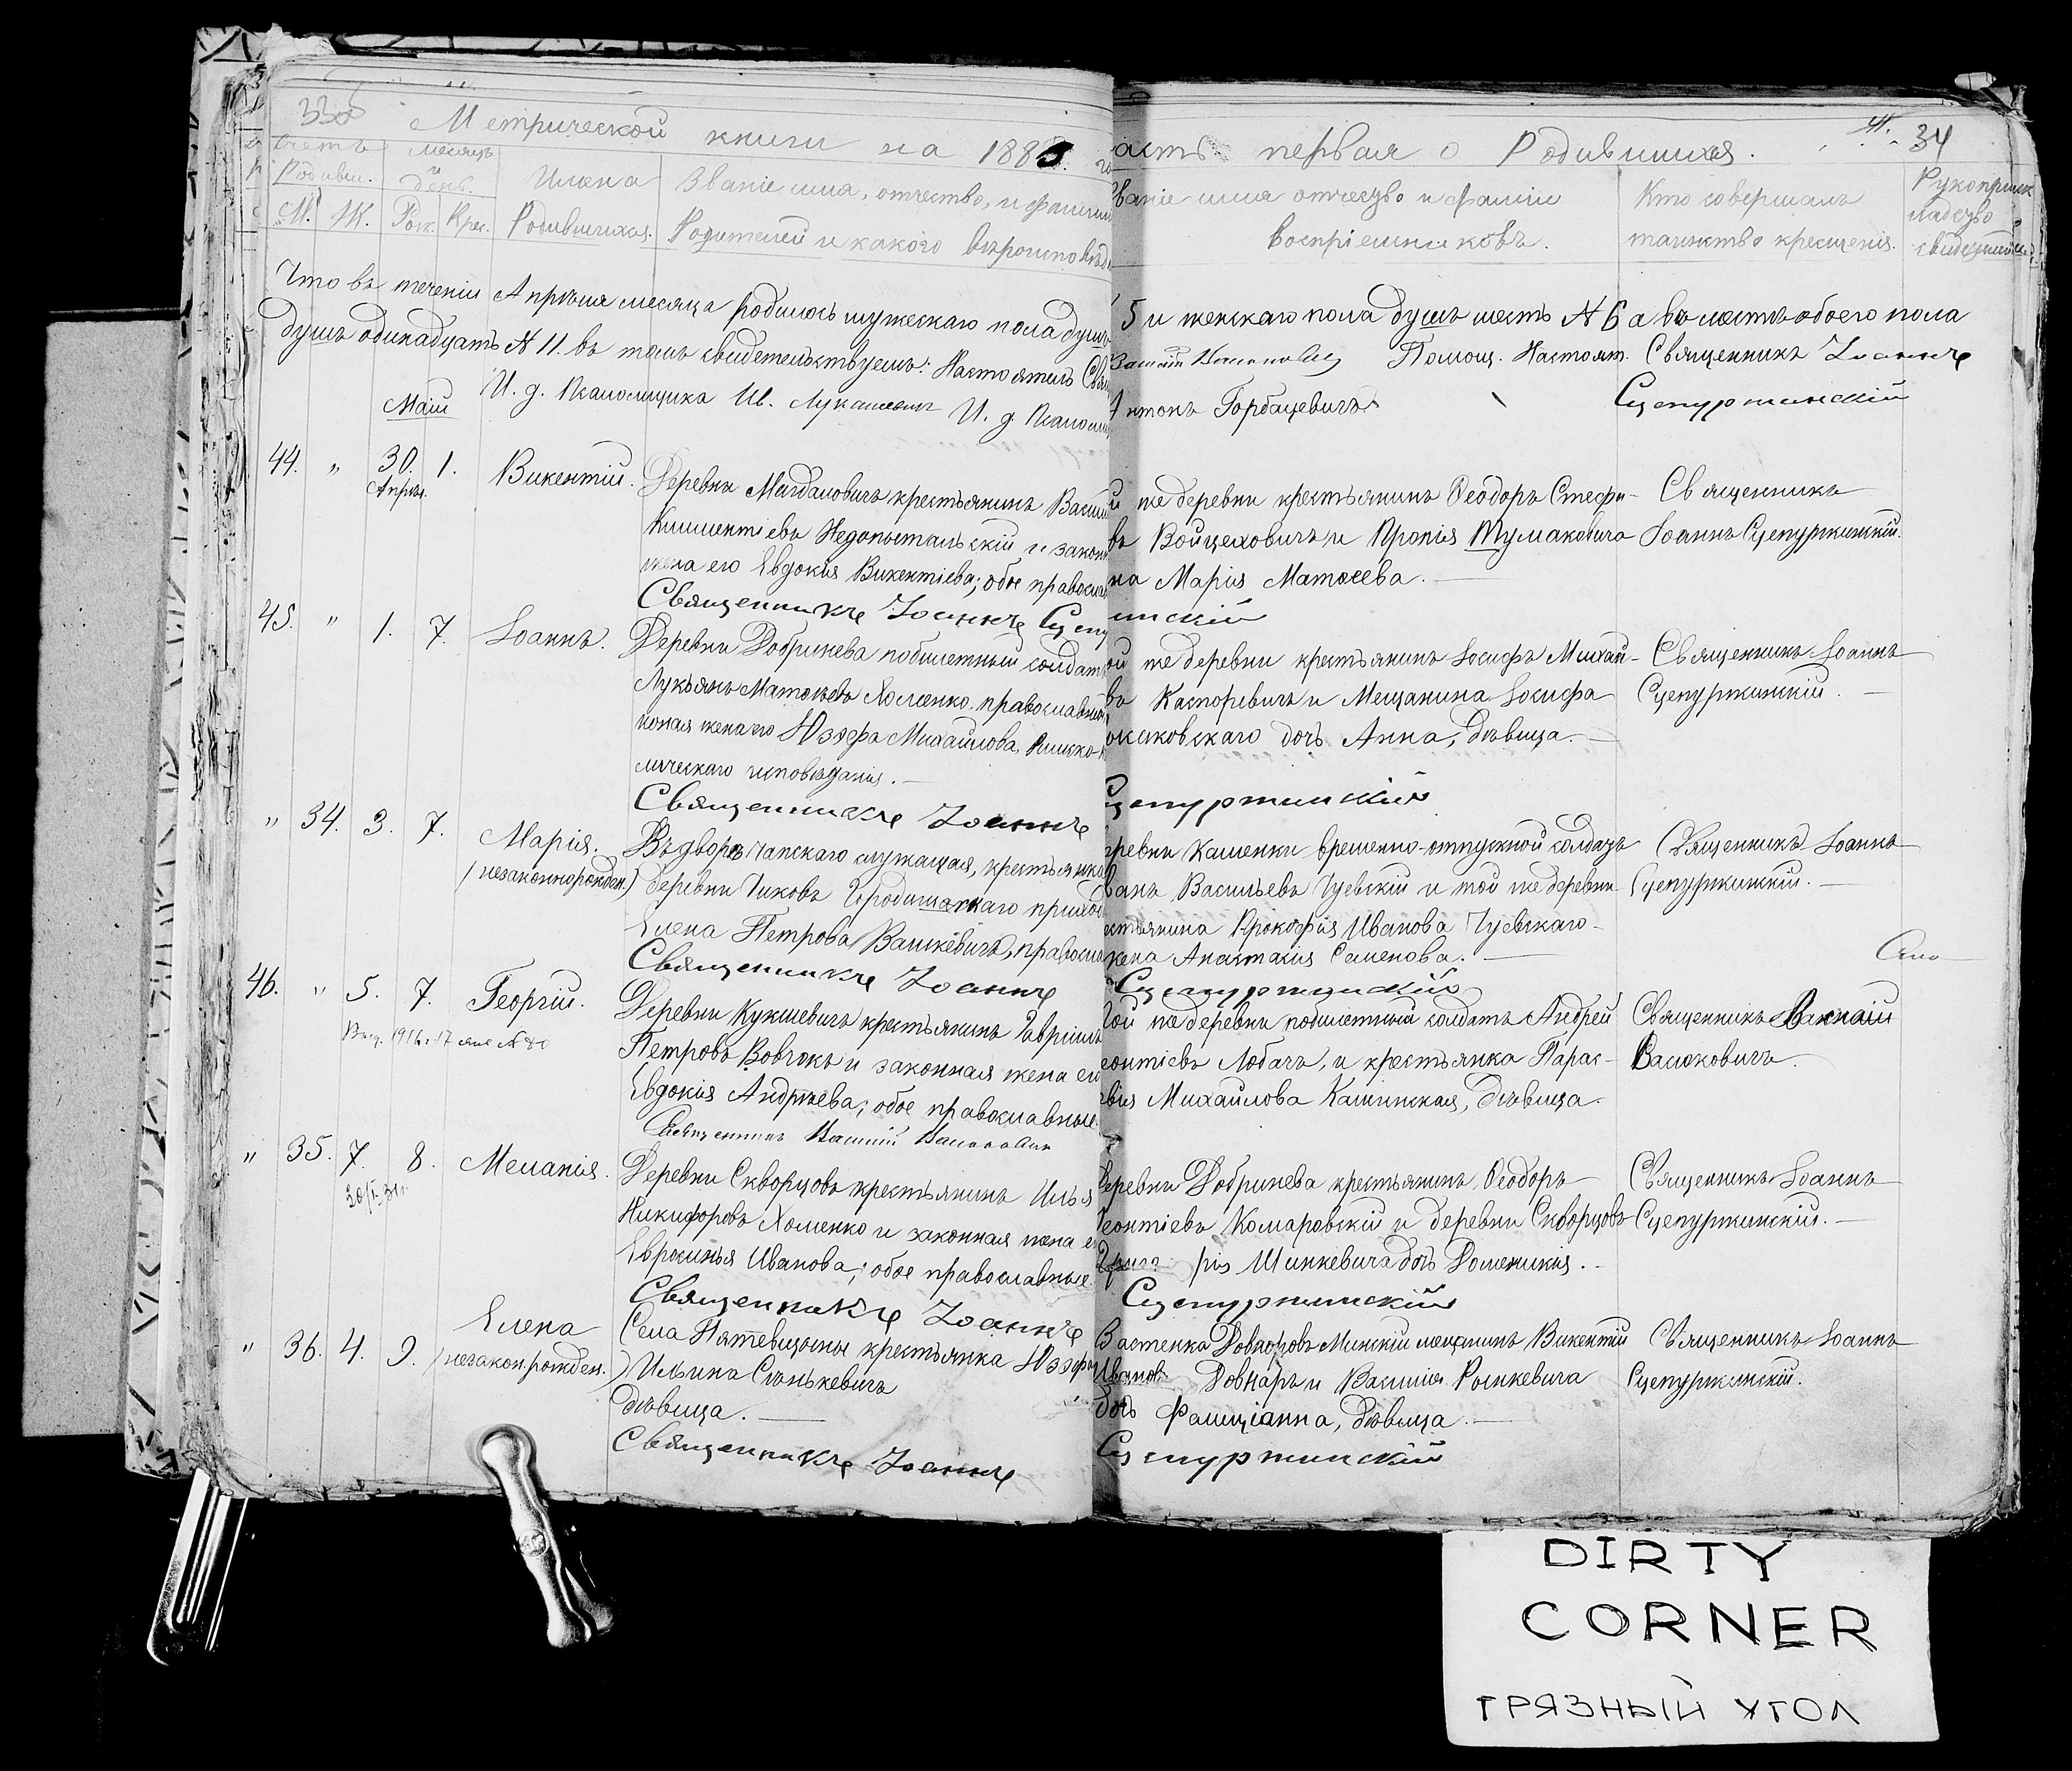 Метрической книги на 188
часть первая о Родившихся.
34
Счетъ
Родивш.
М. Ж.
Месяцъ
и
день.
Рож. Крес.
Имена
Родившихся.
Званіе имя, отчество, и фамилія
Родителей и какого вероисповед
Званіе имя отчество и фамилія
воспріемниковъ.
Кто совершалъ
таинство крещенія.
Рукоприк
ладство
свидетелей
Что въ теченіи Апрѣля месяца родилось мужескаго пола душъ 5 и женскаго пола душъ шесть № 6 а вместъ обоего пола
душъ одинадцать № 11. въ томъ свидетельствуемъ: Настоятель Помощ. Настоят. Священникъ Іоаннъ
И. д. Псаломщика И. д. Псалом Антонъ Горбацевичъ Сцепуржинскій
Маій
44. " 30. 1. Викентій.
Апрѣл.
Деревни Магдаловичъ крестьянинъ Васил
Климентіевъ Недопытальскій и закон
жена его Евдокія Викентіева; обое правосла
Священникъ Іоаннъ Сцепуржинскій
й же деревни крестьянинъ Ѳеодоръ Стефа-
въ Войцеховичъ и Тумаковича
на Марія Матѳеева.
Священникъ
Іоаннъ Сцепуржинскій.
45. " 1. 7. Іоаннъ.
Деревни Добринева побилетный солдатъ
Лукьянъ Матѳеевъ Хоменко православный
конная жена его Юзефа Михайлова, Римско-
лическаго исповѣданія.
Священникъ Іоаннъ Сцепуржинскій
ой же деревни крестьянинъ Іосифъ Михай-
въ Каспоревичъ и Мещанина Іосифа
дочь Анна, дѣвица.
Священникъ Іоаннъ
Сцепуржинскій.
" 34. 3. 7. Марія.
(незаконнорожден.)
служащая, крестьянка
деревни Чиковъ Городищанскаго приход
Елена Петрова Вашкевичъ, правосла
Священникъ Іоаннъ Сцепуржинскій
деревни Каменки временно-отпускной солдатъ
Иванъ Васильевъ Чуевскій и той же деревни
крестьянина Прокофія Иванова Чуевскаго
жена Анастасія Семенова.
Священникъ Іоаннъ
Сцепуржинскій.
46. " 5. 7. Георгій.
Деревни Кукшевичъ крестьянинъ Гавріилъ
Петровъ Вовчокъ и законная жена его
Евдокія Андреева; обое православные.
Священникъ
Той же деревни побилетный солдатъ Андрей
Леонтіевъ Лобачъ, и крестьянка Парас-
Михайлова Кашинская, Дѣвица.
Священникъ
Васюковичъ.
" 35. 7. 8. Меланія.
Деревни Скворцовъ крестьянинъ Илья
Никифоровъ Хоменко и законная жена его
Евросинья Иванова; обое православные.
Священникъ Іоаннъ Сцепуржинскій
Деревни Добринева крестьянинъ Ѳеодоръ
Леонтіевъ Комаровскій и деревни Скворцовъ
Шинкевича дочь Доминикія.
Священникъ Іоаннъ
Сцепуржинскій.
" 36. 4. 9. Елена
(незакон.рожден.)
Села Пятевщины крестьянка Юзефа
Ильина Станькевичъ
Дѣвица.
Священникъ Іоаннъ Сцепуржинскій
Застенка Довноровъ Минскій мещанинъ Викентій
Ивановъ Довнаръ и Василія Рышкевича
дочь Фелиціанна, Дѣвица
Священникъ Іоаннъ
Сцепуржинскій.
DIRTY
CORNER
ГРЯЗНЫЙ УГОЛ